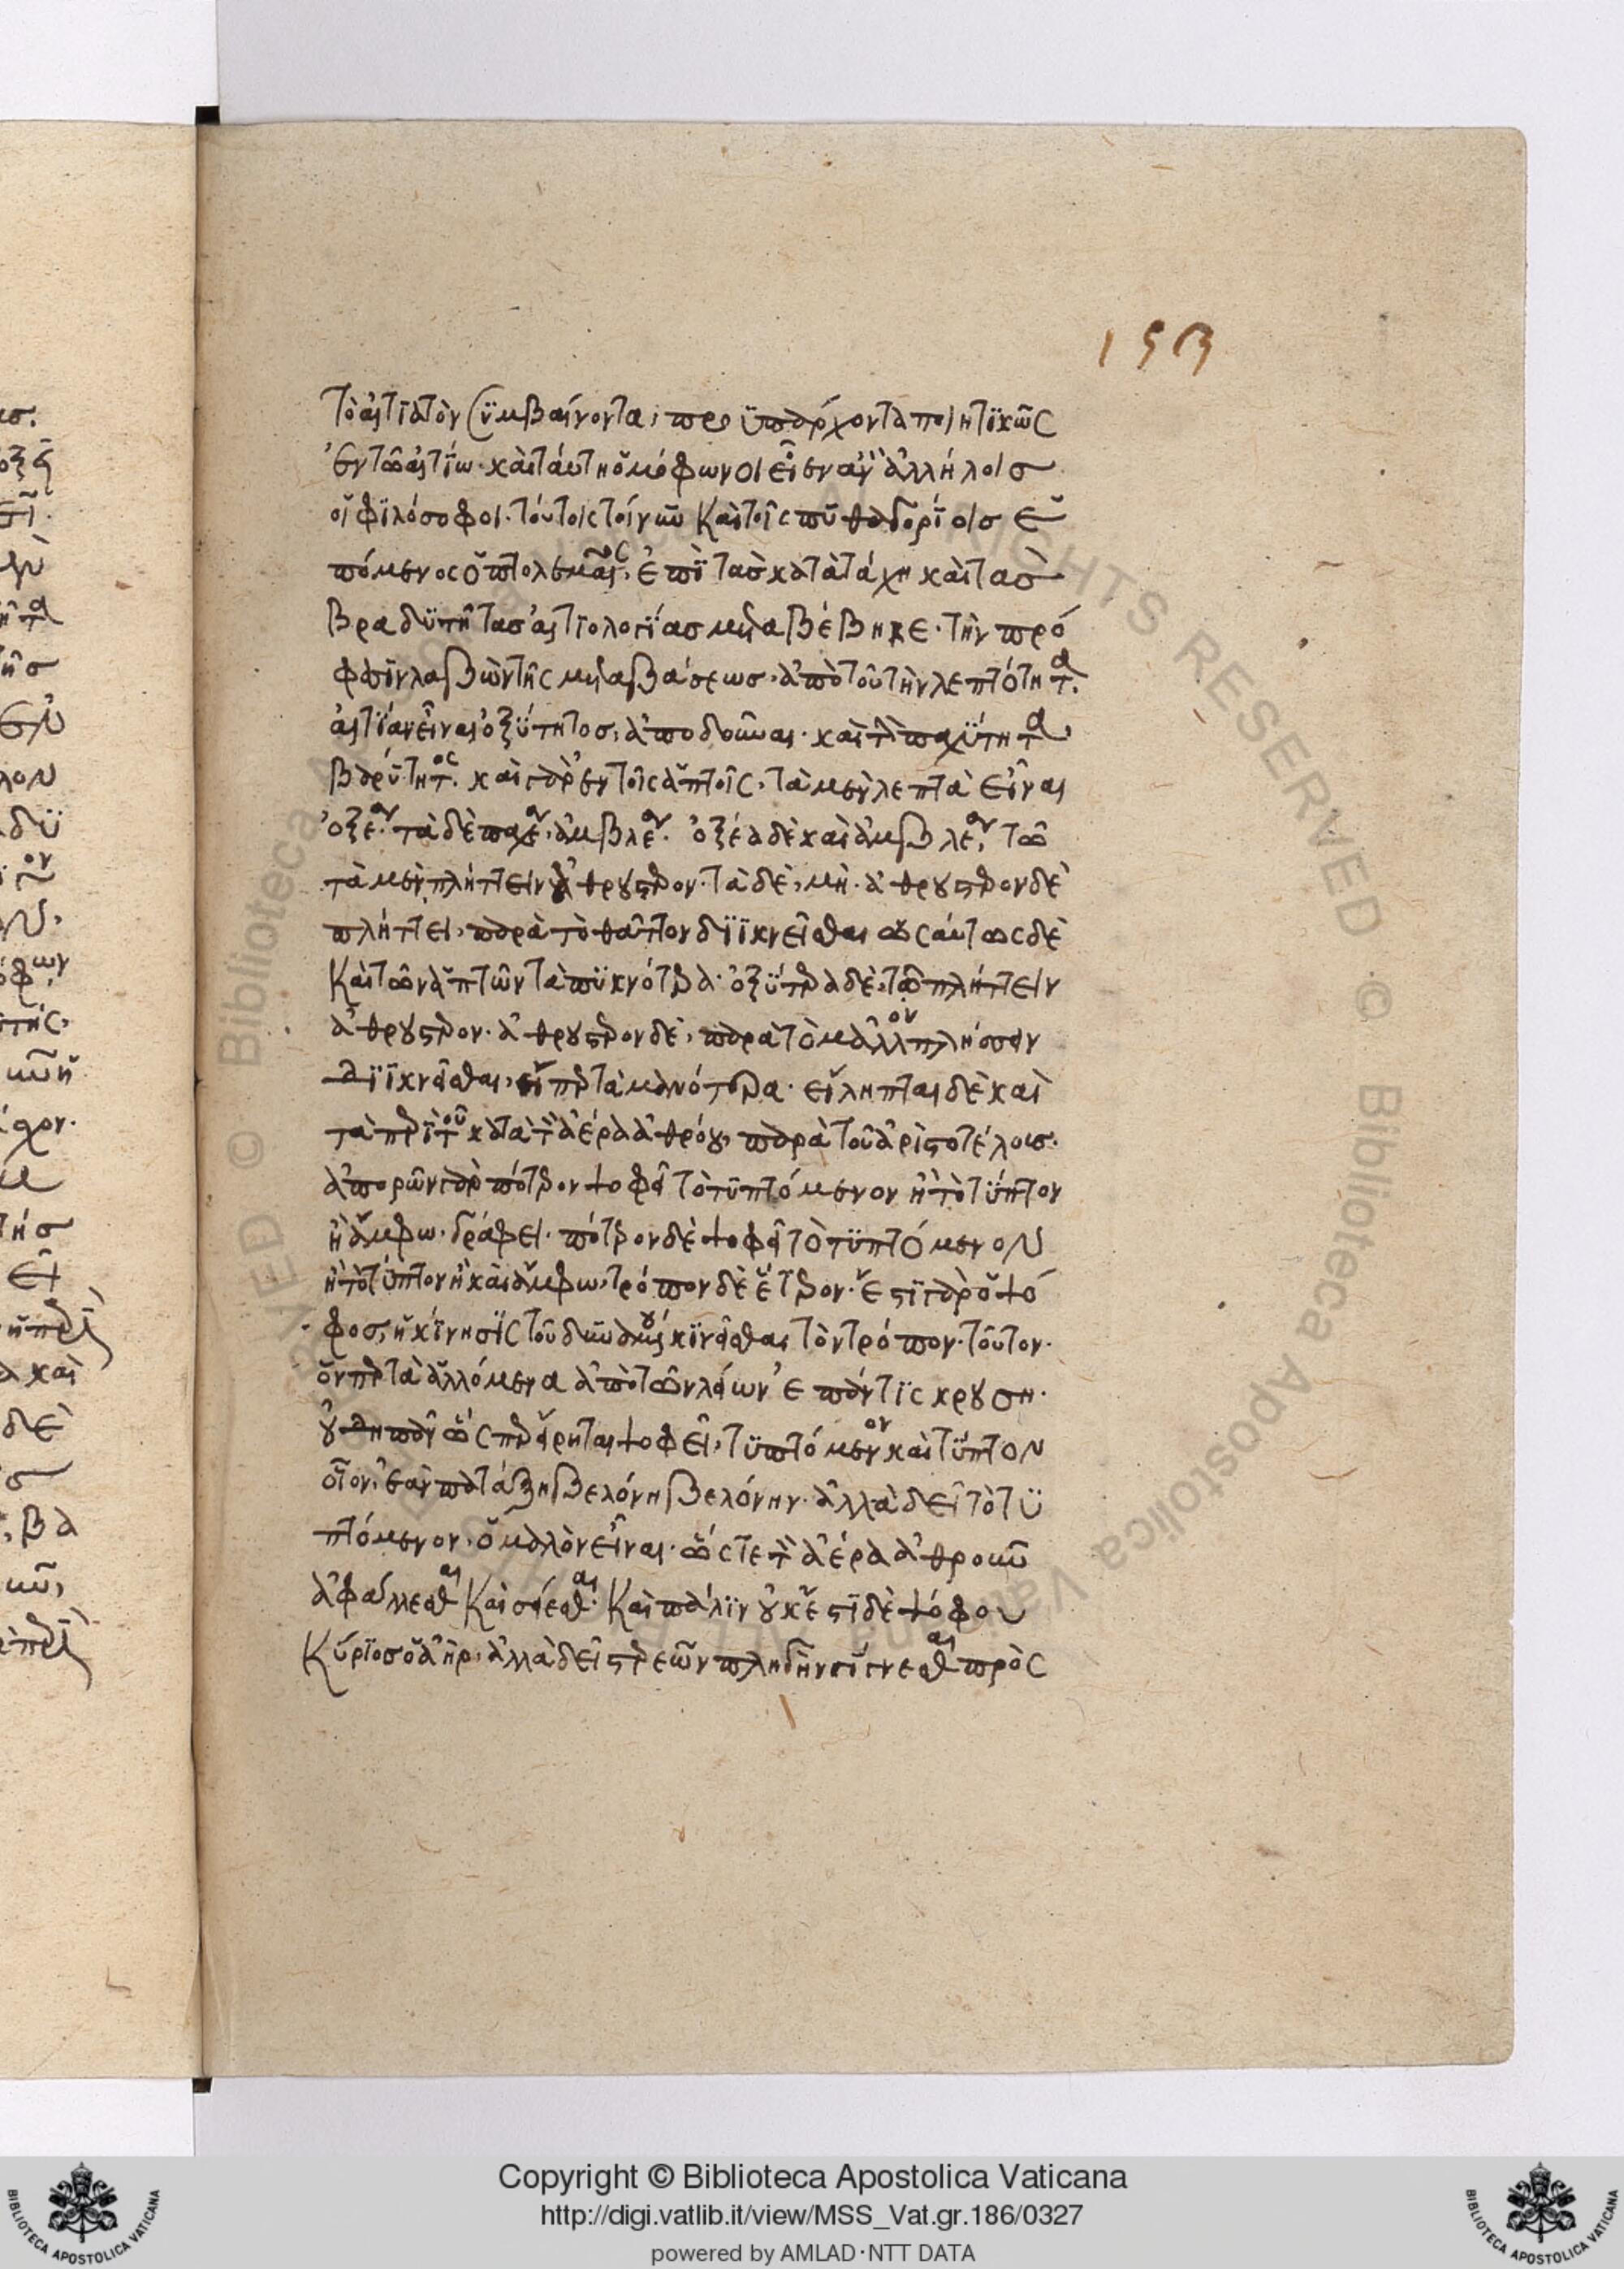 153
τὸ αἰτιατὸν συμβαίνοντα, προϋπάρχοντα ποιητικῶς
ἐν τῶ αἰτίω. καὶ ταύτη ὁμόφωνοι εἶεν ἂν ἀλλήλοισ
οἱ φιλόσοφοι. τούτοις τοίνυν καὶ τοῖς πυθαγορίοισ ἑ
πόμενος ὁ πτολεμαῖος, ἐπὶ τὰσ κατὰ τάχη καὶ τὰσ
βραδυτῆτασ αἰτιολογίασ μεταβέβηκε. τὴν πρό
φασιν λαβὼν τῆς μεταβάσεωσ, ἀπὸ τοῦ τὴν λεπτότητα
αἰτίαν εἶναι ὀξύτητοσ, ἀποδοῦναι. καὶ τὴν παχύτητα,
βαρύτητος. καὶ γὰρ ἐν τοῖς ἁπτοῖς, τὰ μὲν λεπτὰ εἶναι
ὀξέα. τὰ δὲ παχέα, ἀμβλέα. ὀξέα δὲ καὶ ἀμβλέα, τῶ
τὰ μὲν πλήττειν ἀθρούστερον. τὰ δὲ, μή. ἀθρούστερον δὲ
πλήττει, παρὰ τὸ θᾶττον διϊκνεῖσθαι ὡσαύτως δὲ
καὶ τῶν ἁπτῶν τὰ πυκνότερα. ὀξύτερα δὲ, τῶ πλήττειν
ἀθρούστερον. ἀθρούστερον δὲ, παρὰ τὸ μᾶλλον πλήσσειν
διϊκνεῖσθαι, εἴπερ τὰ μανότερα. εἴληπται δὲ καὶ
τὰ περὶ τοῦ κατὰ τὸν ἀέρα ἀθρόου, παρὰ τοῦ ἀριστοτέλουσ.
ἀπορῶν γὰρ πότερον ψοφεῖ τὸ τυπτόμενον ἢ τὸ τύπτον
ἢ ἄμφω. γράφει. πότερον δὲ ψοφεῖ τὸ τυπτόμενον
ἢ τὸ τύπτον ἢ καὶ ἄμφω, τρόπον δὲ ἕτερον. ἔστι γὰρ ὁ ψό
φοσ, ἡ κίνησις τοῦ δυναμένου κινεῖσθαι τὸν τρόπον. τοῦτον.
ὅνπερ τὰ ἁλλόμενα ἀπὸ τῶν λείων ἐπάν τις κρούση.
οὐ δὴ πᾶν ὥσπερ εἴρηται ψοφεῖ, τυπτόμενον καὶ τύπτον
οἷον, ἐὰν πατάξη βελόνη βελόνην. ἀλλὰ δεῖ τὸ τυ
πτόμενον. ὁμαλὸν εἶναι. ὥστε τὸν ἀέρα ἀθροῦν
ἀφάλλεσθαι καὶ σείεσθαι. καὶ πάλιν οὐκ ἔστι δὲ ψόφου
κύριοσ ὁ ἀὴρ. ἀλλὰ δεῖ στερεῶν πληγὴν γίγνεσθαι πρὸς
Copyright © Biblioteca Apostolica Vaticana
http://digi.vatlib.it/view/MSS_Vat.gr.186/0327
powered by AMLAD·NTT DATA